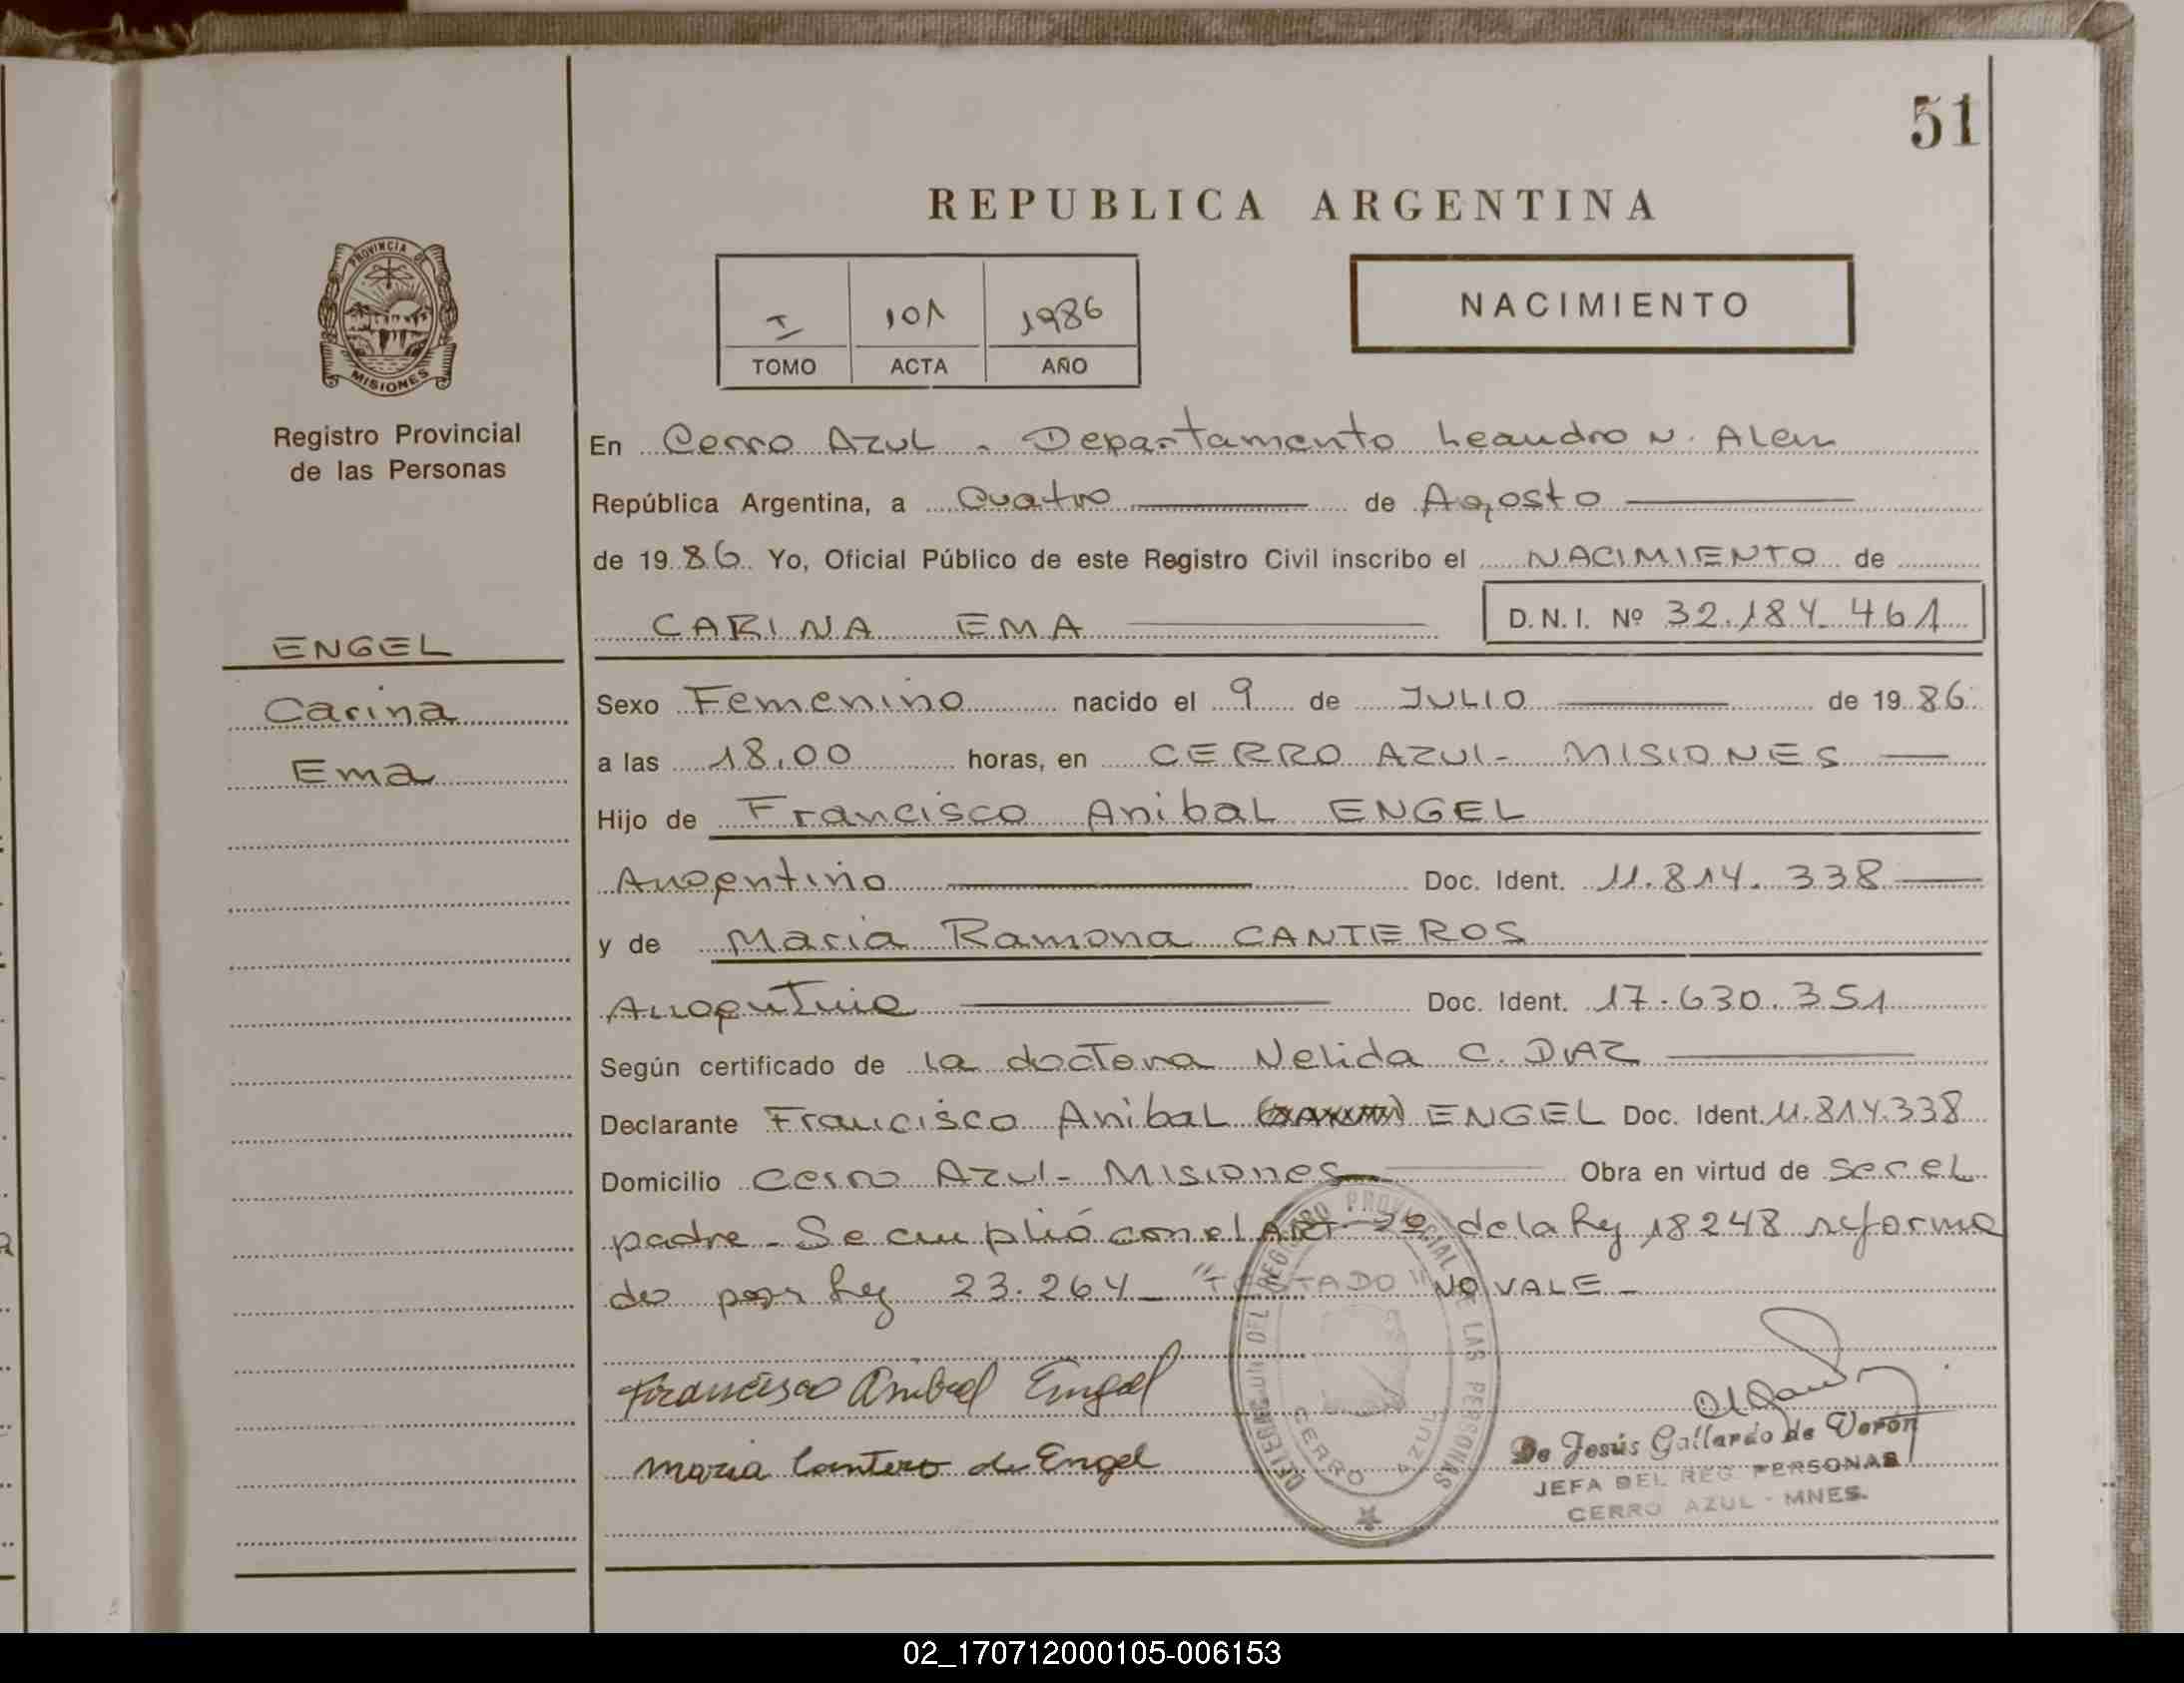 51
REPUBLICA ARGENTINA
PROVINCIA DE
MISIONES
Registro Provincial
de las Personas
I 101 1986
TOMO ACTA AÑO
NACIMIENTO
En Cerro Azul - Departamento Leandro N. Alem
República Argentina, a Cuatro de Agosto
de 1986 Yo, Oficial Público de este Registro Civil inscribo el NACIMIENTO de
CARINA EMA D.N.I. Nº 32.184.461
ENGEL
Carina
Ema
Sexo Femenino nacido el 9 de JULIO de 1986
a las 18,00 horas, en CERRO AZUL - MISIONES
Hijo de Francisco Anibal ENGEL
Argentino Doc. Ident. 11.814.338
y de Maria Ramona CANTEROS
Argentina Doc. Ident. 17.630.351
Según certificado de la doctora Nelida C. DIAZ
Declarante Francisco Anibal ENGEL Doc. Ident. 11.814.338
Domicilio Cerro Azul - Misiones Obra en virtud de ser el
padre - Se cumplió con el ART-2º de la ley 18248 reforma
do por ley 23.264 - "TESTADO" NO VALE -
Francisco Anibal Engel
Maria Cantero de Engel
DEL REGISTRO PROVINCIAL DE LAS PERSONAS
CERRO AZUL
De Jesús Gallardo de Verón
JEFA DEL REG PERSONAS
CERRO AZUL - MNES.
02_170712000105-006153